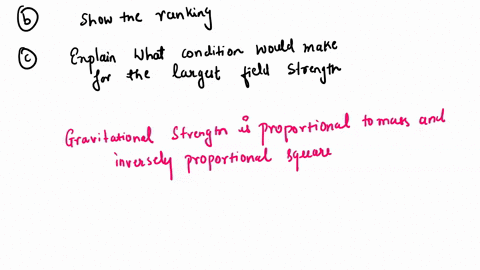 (b) Show the ranking
(c) Explain What condition would make
for the largest field strength
Gravitational Strength is proportional to mass and
inversely proportional square